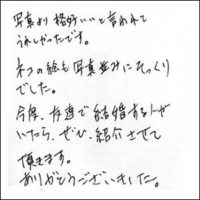 写真より格好いいと言われて
うれしかったです。
ネコの絵も写真並みにそっくり
でした。
今度、友達で結婚する人が
いたら、ぜひ、紹介させて
頂きます。
ありがとうございました。